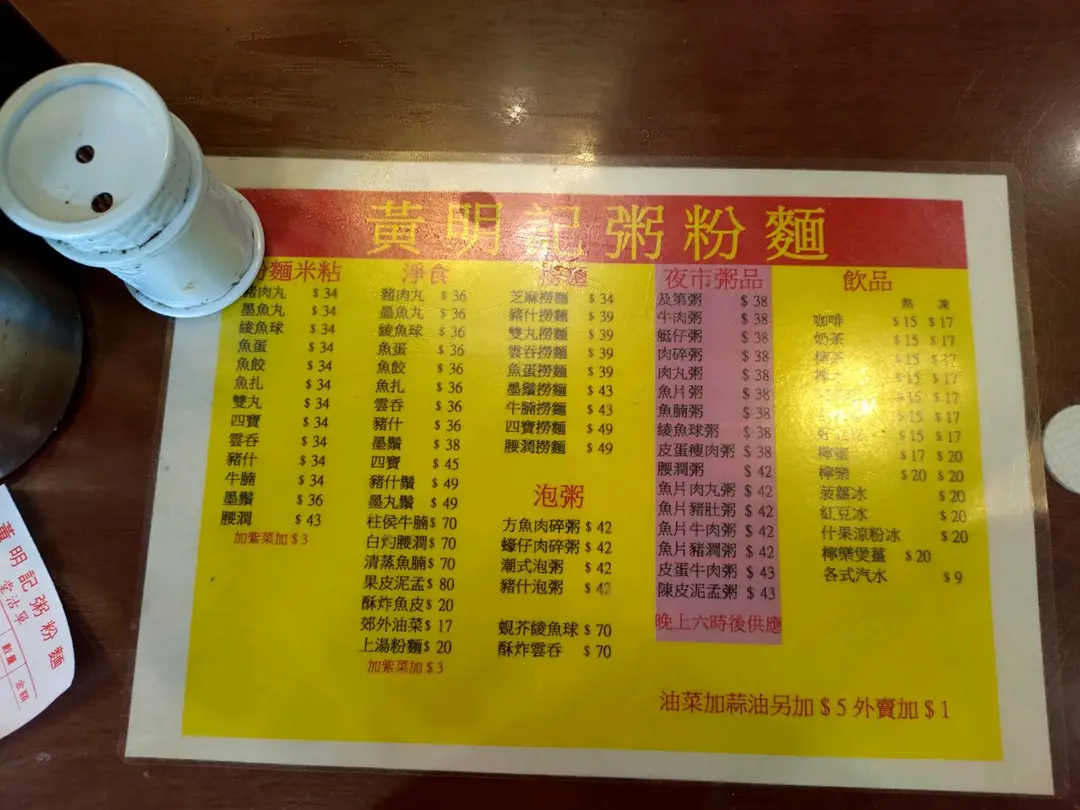 黃明記粥粉麵
粉麵米粘
豬肉丸 $34
墨魚丸 $34
綾魚球 $34
魚蛋 $34
魚餃 $34
魚扎 $34
雙丸 $34
四寶 $34
雲吞 $34
豬什 $34
牛腩 $34
墨鬚 $36
腰潤 $43
加紫菜加$3
淨食
豬肉丸 $36
墨魚丸 $36
綾魚球 $36
魚蛋 $36
魚餃 $36
魚扎 $36
雲吞 $36
豬什 $36
墨鬚 $38
四寶 $45
豬什鬚 $49
墨丸鬚 $49
柱侯牛腩$70
白灼腰潤$70
清蒸魚腩$70
果皮泥孟$80
酥炸魚皮$20
郊外油菜$17
上湯粉麵$20
加紫菜加$3
撈麵
芝麻撈麵 $34
豬什撈麵 $39
雙丸撈麵 $39
雲吞撈麵 $39
魚蛋撈麵 $39
墨鬚撈麵 $43
牛腩撈麵 $43
四寶撈麵 $49
腰潤撈麵 $49
泡粥
方魚肉碎粥 $42
蠔仔肉碎粥 $42
潮式泡粥 $42
豬什泡粥 $42
蜆芥綾魚球 $70
酥炸雲吞 $70
夜市粥品
及第粥 $38
牛肉粥 $38
艇仔粥 $38
肉碎粥 $38
肉丸粥 $38
魚片粥 $38
魚腩粥 $38
綾魚球粥 $38
皮蛋瘦肉粥 $38
腰潤粥 $42
魚片肉丸粥 $42
魚片豬肚粥 $42
魚片牛肉粥 $42
魚片豬潤粥 $42
皮蛋牛肉粥 $43
陳皮泥孟粥 $43
晚上六時後供應
飲品
熱 凍
咖啡 $15 $17
奶茶 $15 $17
$15 $17
$15 $17
$15 $17
$15 $17
$15 $17
檸蜜 $17 $20
檸樂 $20 $20
菠蘿冰 $20
紅豆冰 $20
什果涼粉冰 $20
檸樂煲薑 $20
各式汽水 $9
油菜加蒜油另加$5外賣加$1
黃明記粥粉麵
堂沽單
數量 金額